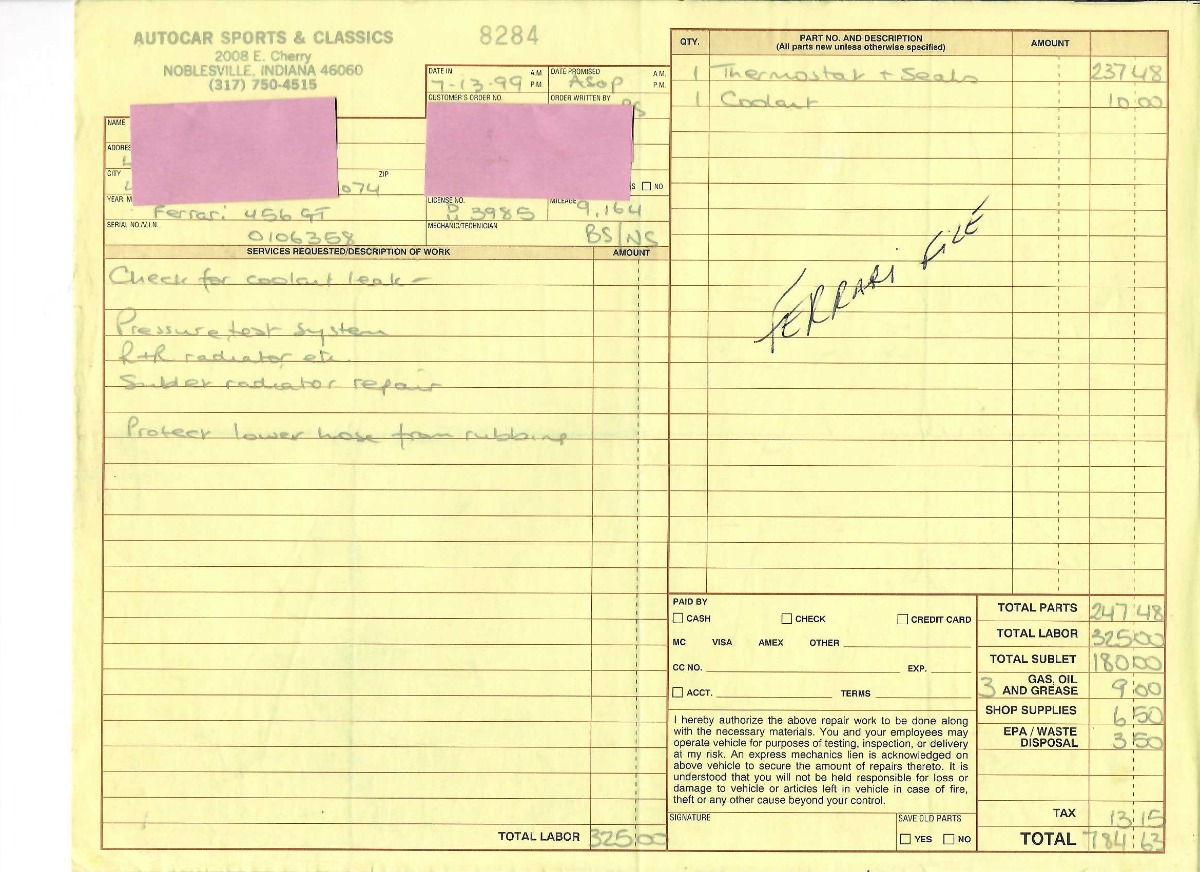 AUTOCAR SPORTS & CLASSICS
2008 E. Cherry
NOBLESVILLE, INDIANA 46060
(317) 750-4515
8284
DATE IN 7-13-99 A.M. P.M.
DATE PROMISED ASOP A.M. P.M.
CUSTOMER'S ORDER NO.
ORDER WRITTEN BY
NAME
ADDRE
CITY ZIP 074
S ☐ NO
YEAR M Ferrari 456 GT
LICENSE NO. 3985
MILEAGE 9,164
SERIAL NO./V.I.N. 0106358
MECHANIC/TECHNICIAN BS/NS
SERVICES REQUESTED/DESCRIPTION OF WORK AMOUNT
Check for coolant leak -
Pressure test system
R+R radiator etc.
Sublet radiator repair
Protect lower hose from rubbing
TOTAL LABOR 325.00
QTY. PART NO. AND DESCRIPTION AMOUNT
(All parts new unless otherwise specified)
1 Thermostat + Seals 237 48
1 Coolant 10 00
FERRARI FILE
PAID BY
☐ CASH ☐ CHECK ☐ CREDIT CARD
MC VISA AMEX OTHER
CC NO. EXP.
☐ ACCT. TERMS
I hereby authorize the above repair work to be done along
with the necessary materials. You and your employees may
operate vehicle for purposes of testing, inspection, or delivery
at my risk. An express mechanics lien is acknowledged on
above vehicle to secure the amount of repairs thereto. It is
understood that you will not be held responsible for loss or
damage to vehicle or articles left in vehicle in case of fire,
theft or any other cause beyond your control.
SIGNATURE
SAVE OLD PARTS
☐ YES ☐ NO
TOTAL PARTS 247.48
TOTAL LABOR 325.00
TOTAL SUBLET 180.00
3 GAS, OIL AND GREASE 9.00
SHOP SUPPLIES 6.50
EPA / WASTE DISPOSAL 3.50
TAX 13.15
TOTAL 784.63